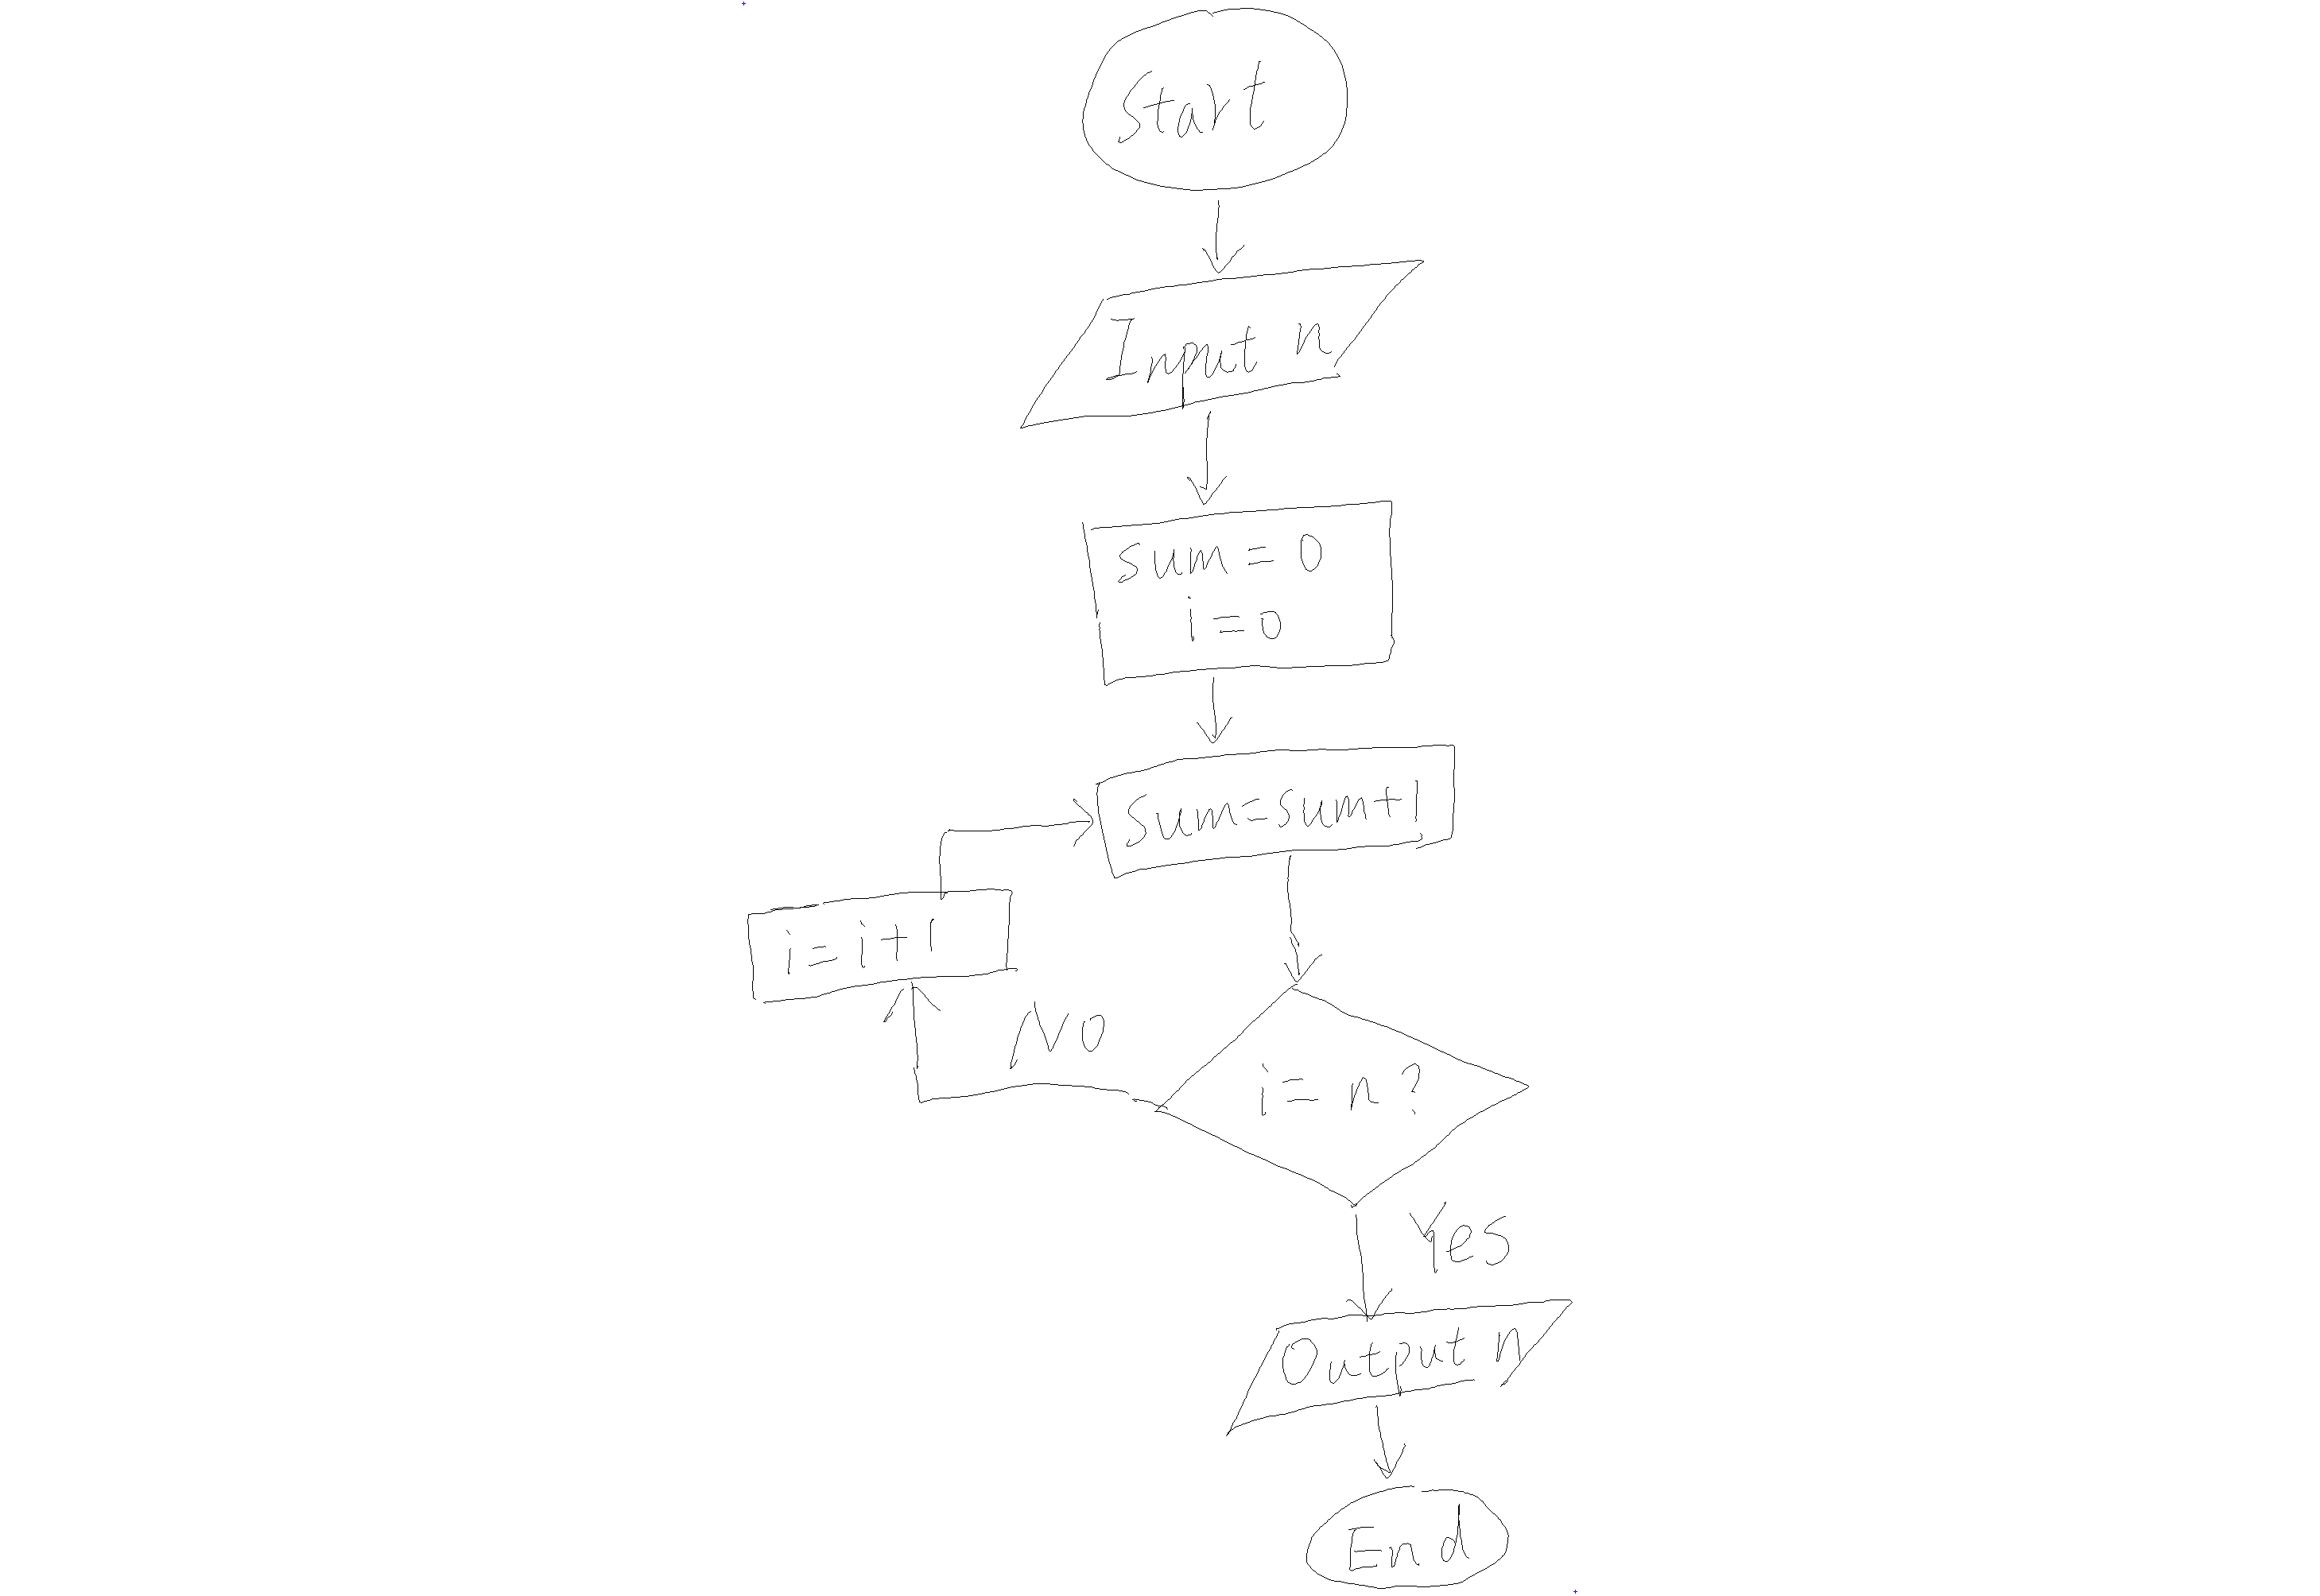 Start
Input n
sum = 0
i = 0
Sum=sum+1
i = i+1
NO
i = n?
Yes
Output n
End